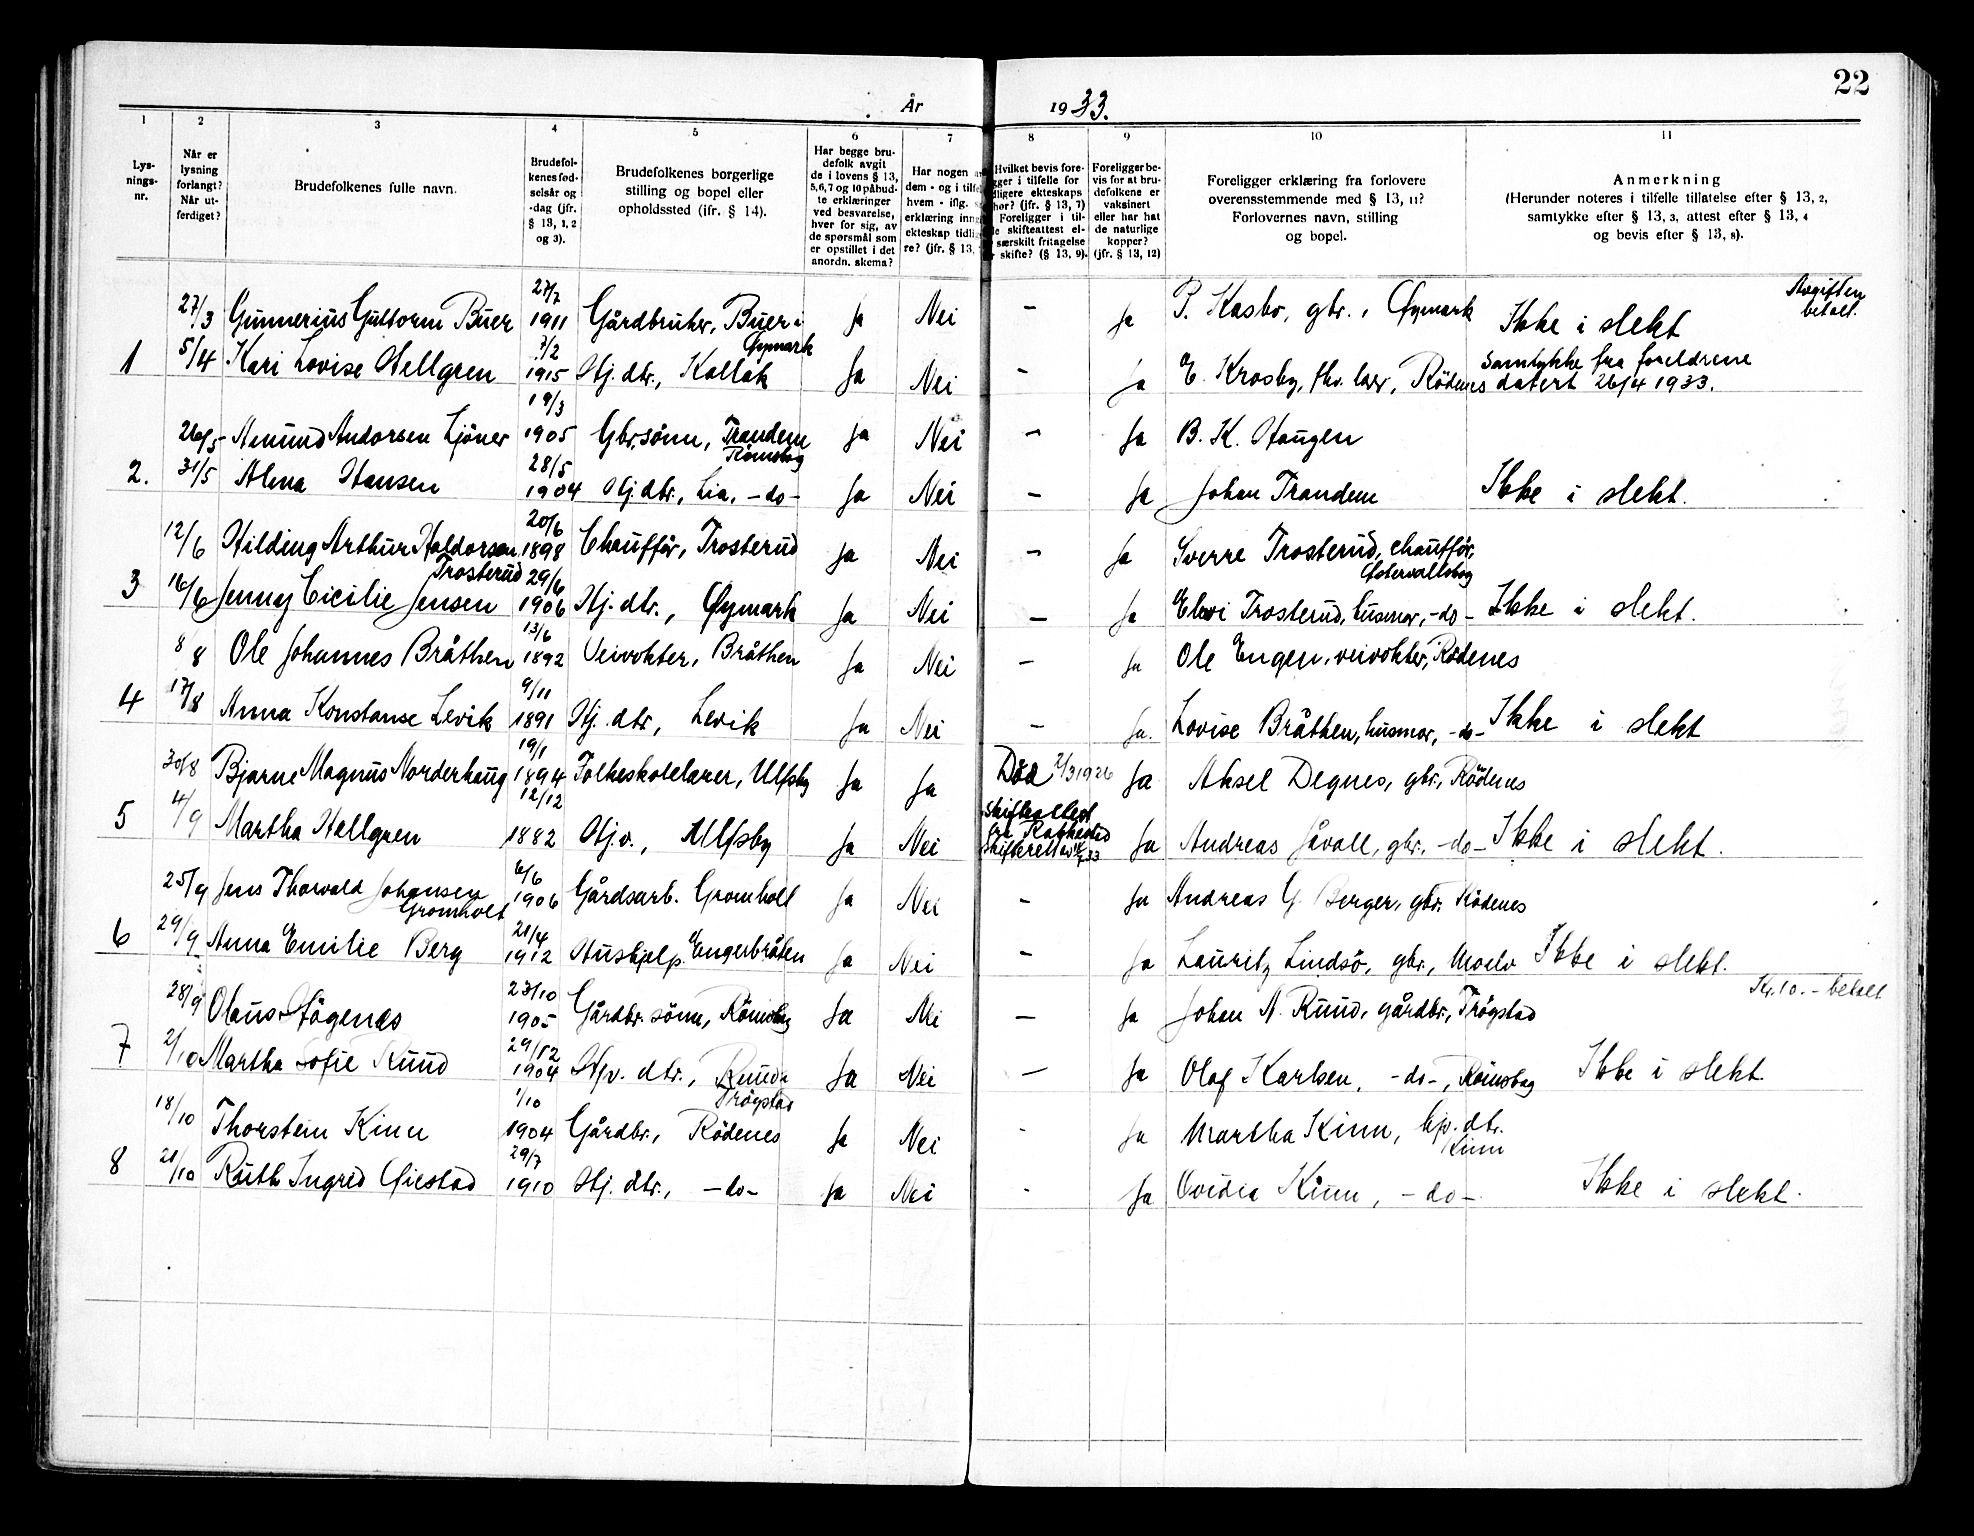 22
År 1933.
1 2 3 4 5 6 7 8 9 10 11
Lys-
nings-
nr.
Når er
lysning
forlangt?
Når ut-
ferdiget?
Brudefolkenes fulle navn.
Brudefol-
kenes fød-
selsår og
-dag (jfr.
§ 13, 1, 2
og 3).
Brudefolkenes borgerlige
stilling og bopel eller
opholdssted (ifr. § 14).
Har begge bru-
defolk avgit
de i lovens § 13,
5, 6, 7 og 10 påbud-
te erklæringer
ved besvarelse,
hver for sig, av
de spørsmål som
er opstillet i det
anordn. skema?
Har nogen a
dem - og i tilfe
hvem - iflg. s
erklæring inng
ekteskap tidli
re? (jfr. § 13,
Hvilket bevis fore-
gger i tilfelle for
dligere ekteskaps
hør? (jfr. § 13, 7)
Foreligger i til-
le skifteattest el-
særskilt fritagelse
skifte? (§ 13, 9).
Foreligger be-
vis for at bru-
defolkene er
vaksinert
eller har hat
de naturlige
kopper?
(jfr. § 13, 12)
Foreligger erklæring fra forlovere
overensstemmende med § 13, 11?
Forlovernes navn, stilling
og bopel.
Anmerkning
(Herunder noteres i tilfelle tillatelse efter § 13, 2,
samtykke efter § 13, 3, attest efter § 13, 4
og bevis efter § 13, 8).
27/3 Gunnerius Guttorm Buer 27/7 1911 Gårdbruker, Buer i Øymark Ja Nei — Ja P. Kasbo, gbr., Øymark Ikke i slekt Avgiften betalt.
1 5/4 Kari Lovise Hellgren 7/2 1915 Hj. dtr., Kollok Ja Nei — Ja E. Krosby, fhv. lær, Rödenes Samtykke fra foreldrene datert 26/4 1933.
26/5 Amund Andorsen Ljöner 19/3 1905 Gbr.sönn, Trandem Römskog Ja Nei — Ja B. K. Haugen
2. 31/5 Alma Hansen 28/5 1904 Hj. dtr., Lia, -do- Ja Nei — Ja Johan Trandem Ikke i slekt.
12/6 Hilding Arthur Haldorsen Trosterud 20/6 1898 Chaufför, Trosterud Ja Nei — Ja Sverre Trosterud, chauffør, Østervallskog
3 16/6 Jenny Cicilie Jensen 29/6 1906 Hj. dtr., Øymark Ja Nei — Ja Elevi Trosterud, husmor, -do- Ikke i slekt.
8/8 Ole Johannes Bråthen 13/6 1892 Veivokter, Bråthen Ja Nei — Ja Ole Engen, veivokter, Rödenes
4 17/8 Anna Konstanse Levik 9/11 1891 Hj. dtr, Levik Ja Nei — Ja. Lovise Bråthen, husmor, -do- Ikke i slekt
30/8 Bjarne Magnus Norderhaug 19/1 1894 Folkeskolelærer, Ulfsby Ja Ja Död 2/3 1926 Ja Aksel Degnes, gbr., Rödenes
5 4/9 Martha Hallgren 12/12 1882 Hj.v., Ulfsby Ja Nei Skifteattest fra Rakkestad skifterett Ja Andreas Jåvall, gbr., -do- Ikke i slekt.
25/9 Jens Thorvald Johansen Gromholt 6/6 1906 Gårdsarb. Gromholt Ja Nei — Ja Andreas G. Berger, gbr. Rödenes
6 29/9 Anna Emilie Berg 21/4 1912 Hushjelp. Engerbråten Ja Nei — Ja Lauritz Lindsö, gbr., Ikke i slekt.
28/9 Olaus Högenes 23/10 1905 Gårdbr. sönn, Römskog Ja Nei — Ja Johan A. Ruud, gårdbr., Trögstad Kr. 10.- betalt
7 2/10 Martha Sofie Ruud 29/12 1904 Hv. dtr., Ruud i Trögstad Ja Nei — Ja Olaf Karlsen, -do-, Römskog Ikke i slekt.
18/10 Thorstein Kinn 1/10 1904 Gårdbr., Rödenes Ja Nei - Ja Martha Kinn, hv. dtr. Kinn
8 21/10 Ruth Ingred Øiestad 29/7 1910 Hj. dtr., -do- Ja Nei - Ja Ovidia Kinn, -do- Ikke i slekt.